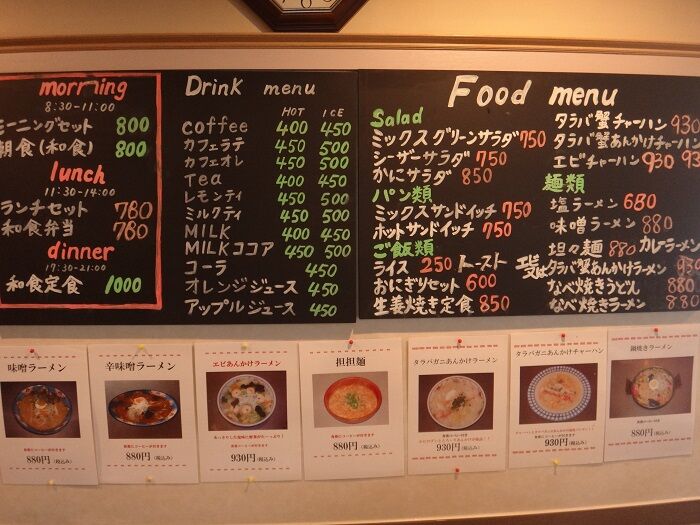 morning
8:30-11:00
モーニングセット 800
朝食(和食) 800
lunch
11:30-14:00
ランチセット 780
和食弁当 780
dinner
17:30-21:00
和食定食 1000
Drink menu
HOT ICE
coffee 400 450
カフェラテ 450 500
カフェオレ 450 500
Tea 400 450
レモンティ 450 500
ミルクティ 450 500
MILK 400 450
MILKココア 450 500
コーラ 450
オレンジジュース 450
アップルジュース 450
Food menu
Salad
ミックスグリーンサラダ 750
シーザーサラダ 750
かにサラダ 850
パン類
ミックスサンドイッチ 750
ホットサンドイッチ 750
ご飯類
ライス 250 トースト
おにぎりセット 600
生姜焼き定食 850
タラバ蟹チャーハン 930
タラバ蟹あんかけチャーハン
エビチャーハン 930
麺類
塩ラーメン 680
味噌ラーメン 880
坦々麺 880 カレーラーメン
タラバ蟹あんかけラーメン 930
なべ焼きうどん 880
なべ焼きラーメン 880
味噌ラーメン
食後にコーヒーが付きます
880円(税込み)
辛味噌ラーメン
食後にコーヒーが付きます
880円(税込み)
エビあんかけラーメン
食後にコーヒーが付きます
930円(税込み)
担担麺
食後にコーヒーが付きます
880円(税込み)
タラバガニあんかけラーメン
930円(税込み)
タラバガニあんかけチャーハン
930円(税込み)
鍋焼きラーメン
880円(税込み)